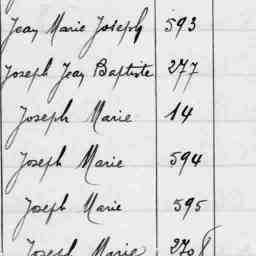 Jean Marie Joseph 593
Joseph Jean Baptiste 277
Joseph Marie 14
Joseph Marie 594
Joseph Marie 595
Joseph Marie 2708